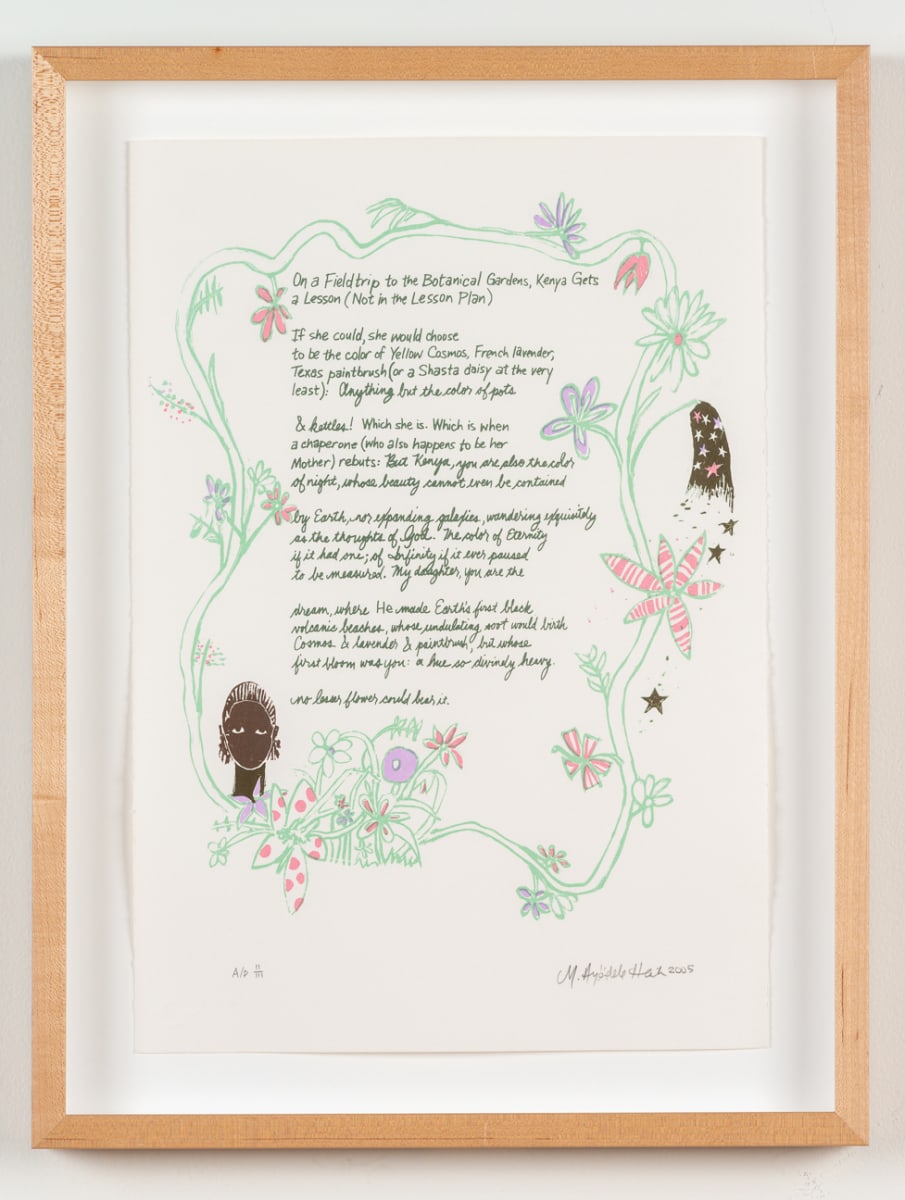 On a Fieldtrip to the Botanical Gardens, Kenya Gets
a Lesson (Not in the Lesson Plan)
If she could, she would choose
to be the color of Yellow Cosmos, French lavender,
Texas paintbrush (or a Shasta daisy at the very
least): Anything but the color of pots
& kettles! Which she is. Which is when
a chaperone (who also happens to be her
Mother) rebuts: But Kenya, you are also the color
of night, whose beauty cannot even be contained
by Earth, nor expanding galaxies, wandering exquisitely
as the thoughts of God. The color of Eternity
if it had one; of Infinity if it ever paused
to be measured. My daughter, you are the
dream, where He made Earth's first black
volcanic beaches, whose undulating soot would birth
Cosmos & lavender & paintbrush, but whose
first bloom was you: a hue so divinely heavy.
no lesser flower could bear it.
A/P III
M. Ayodele Heath 2005